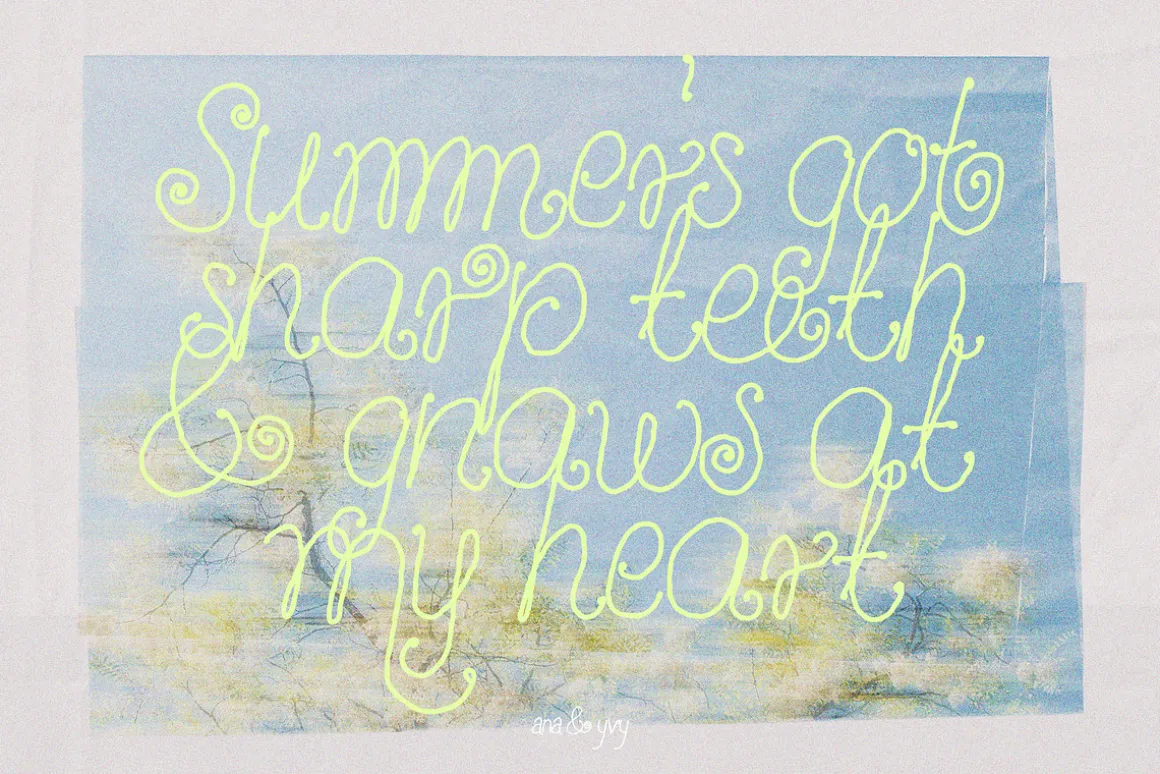 Summer's got
sharp teeth
& gnaws at
my heart
ana & yvy